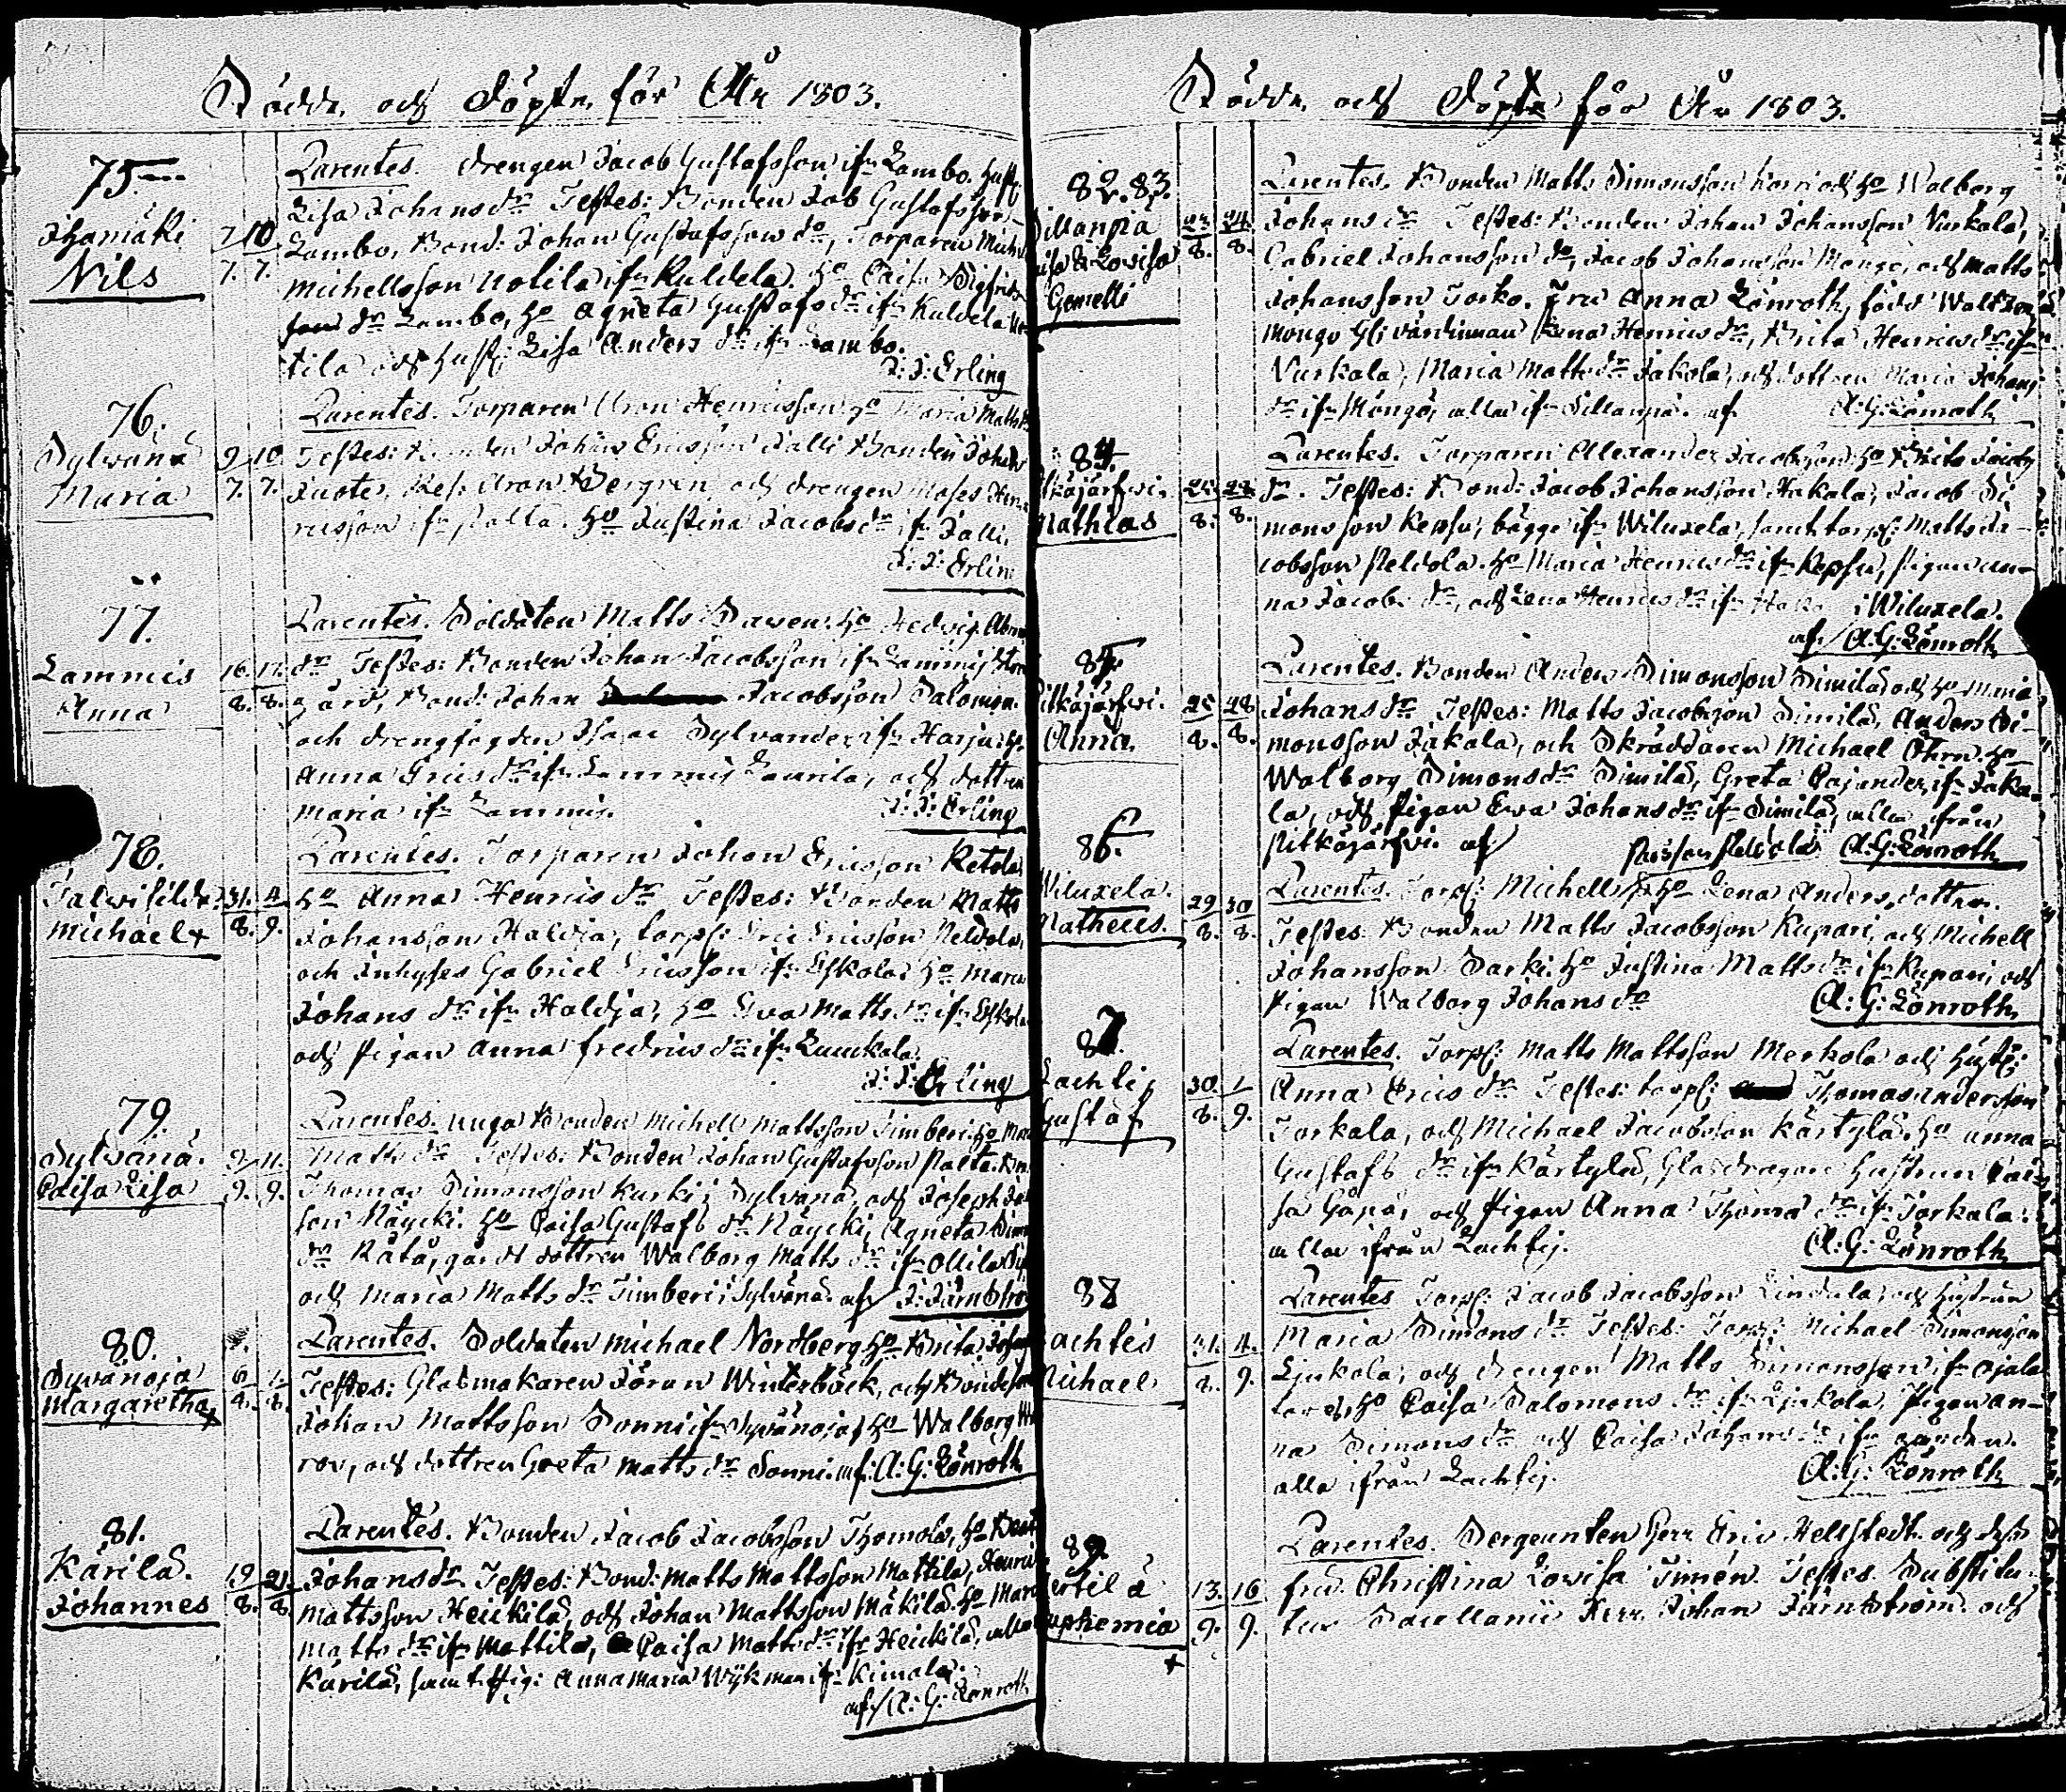 Födde och Döpte för År 1803.
75
Ihamäki
Nils
7. 10
7. 7.
Parentes. Drengen Jacob Gustafsson ifr Lambo. Hust:
Lisa Johans dr Testes: Bonden Job Gustafsson
Lambo, Bond: Johan Gustafsson do, Torparen Mich
Michellsson Uotila ifr Kuldela. Ho Caisa Sigfrids
dr Lambo, Ho Agneta Gustafs dr ifr Kuldela Uo-
tila och Hust: Lisa Anders dr ifr Lambo.
J: J: Erling
76.
Sylvänä
Maria
9 10
7. 7.
Parentes. Torparen Aron Henricsson Ho Maria Matts
Testes: Bonden Johan Ericsson Jalli Bonden Johan
Aron Bergren och Drengen Moses Hen-
ricsson ifr Palta. Ho Justina Jacobs dr ifr Jalli.
J: J: Erlin
77.
Lammis
Anna
16. 17.
8. 8.
Parentes. Soldaten Matts Ho Hedvig Abra
dr Testes: Bonden Johan Jacobsson ifr Lammis
gård, Bond: Johan Jacobsson Salomon
och Drengfogden Isaac Sylvander ifr Harju Ho
Anna Erics dr ifr Lammis Laurila, och dottren
Maria ifr Lammis.
J: J: Erling
78.
Talvisilda
Michael +
31. 4
8. 9.
Parentes. Torparen Johan Ericsson Ketola
Ho Anna Henrics dr Testes: Bonden Matts
Johansson Haldja, Torp: Eric Ericsson Peldola,
och Inhyses Gabriel Ericsson ifr Eskola: Ho Maria
Johans dr ifr Haldja, Ho Eva Matts dr ifr Eskola
och Pigan Anna Fredrics dr ifr
J: J: Erling
79.
Sylvänä.
Caisa Lisa
9. 11.
9. 9.
Parentes. Unga Bonden Michell Mattsson Timberi: Ho Mar
Matts dr Testes: Bonden Johan Gustafsson Palta: Bon
Thomas Simonsson Kurki i Sylvänä, och Joseph Jo
son Näycki. Ho Caisa Gustafs dr Näycki, Agneta Sim
dr Rätä, gårds dottren Walborg Matts dr ifr Ollila
och Maria Matts dr Timberi i Sylvänä. af J: Järnstr
80.
Syvänoja
Margaretha +
6
8. 8.
Parentes. Soldaten Michael Nordberg Ho Brita Joha
Testes: Glasmakaren Jöran Winterbäck, och Bonden
Johan Mattsson Sonni ifr Syvänoja, Ho Walborg
och dottren Greta Matts dr Sonni. af: A: G: Lönroth
81.
Karila.
Johannes
19 21
8. 8.
Parentes. Bonden Jacob Jacobsson Thomola, Ho Beat
Johans dr Testes: Bond: Matts Mattsson Mattila, Henric
Mattsson Heickilä, och Johan Mattsson Mäkilä. Ho Mar
Matts dr ifr Mattila, Caisa Matts dr ifr Heickilä, alla
Karila, samt Pig: Anna Maria Wijkman ifr Kimala.
af/ A: G: Lönroth
Födde och Döpte för År 1803.
82. 83.
Sillanpää
Lisa & Lovisa
Gemelli
23 24
8. 8.
Parentes. Bonden Matts Simonsson och Ho Walborg
Johans dr Testes: Bonden Johan Johansson Nurkala,
Gabriel Johansson do, Jacob Johansson Mongo, och Matts
Johansson Torko. Fru Anna Lönroth, född
Mongo Gl: värdinnan Lena Henrics dr, Brita Henrics dr ifr
Nurkala, Maria Matts dr Jakola, och dottren Maria Johans
dr ifr Mongo, alla ifr Sillanpää. af A: G: Lönroth
84.
Pitkäjärfvi.
Mathias
8. 8.
Parentes. Torparen Alexander Jacobsson Ho Brita Jacobs
dr. Testes: Bond: Jacob Johansson Hakala, Jacob Si-
monsson Kepsu, bägge ifr Wiluxela, samt Torp: Matts Ja-
cobsson Peldola. Ho Maria Henrics dr ifr Kepsu, Pigan An-
na Jacobs dr, och Lena Henrics dr ifr i Wiluxela.
af/ A: G: Lönroth
85
Pitkäjärfvi.
Anna.
25 28
8. 8.
Parentes. Bonden Anders Simonsson Similä och Ho Maria
Johans dr Testes: Matts Jacobsson Similä, Anders Si-
monsson Jakala, och Skräddaren Michael Öhrn. Ho
Walborg Simons dr Similä, Greta Cajander ifr Jaka-
la, och Pigan Ewa Johans dr ifr Similä, alla från
Pitkäjärfvi. af A: G: Lönroth
86.
Wiluxela.
Matheus.
29 30
8. 8.
Parentes. Torp: Michell Ho Lena Anders dotter.
Testes. Bonden Matts Jacobsson Kupari, och Michell
Johansson Sarki. Ho Justina Matts dr ifr Kupari, och
Pigan Walborg Johans dr A: G: Lönroth
87.
Lachtis
Gustaf
30. 1
8. 9.
Parentes. Torp: Matts Mattsson Merkola och Hust:
Anna Erics dr Testes: Torp: Thomas Andersson
Torkala, och Michael Jacobsson Kärtylä. Ho Anna
Gustafs dr ifr Kärtylä, Glasdragare Hustrun Cai-
sa Gåpå, och Pigan Anna Thoma dr ifr Torkala.
alla ifrån Lachtis. A: G: Lönroth
88
Lachtis
Michael
31. 4.
8. 9.
Parentes Torp: Jacob Jacobsson Lindula och Hustrun
Maria Simons dr Testes: Torp: Michael Simonsson
Ljukola, och Drengen Matts Simonsson ifr Ojala
Ho Caisa Salomons dr ifr Ljukola, Pigan An-
na Simons dr och Caisa Johans dr ifr gården.
alla ifrån Lachtis. A: G: Lönroth
89.
Hertilä
Euphemia
+
13. 16
9. 9.
Parentes. Sergeanten Herr Eric Hellstedt och dess
fru Christina Lovisa Timén. Testes. Substitu-
tus Sacellanii Herr Johan Järnström och